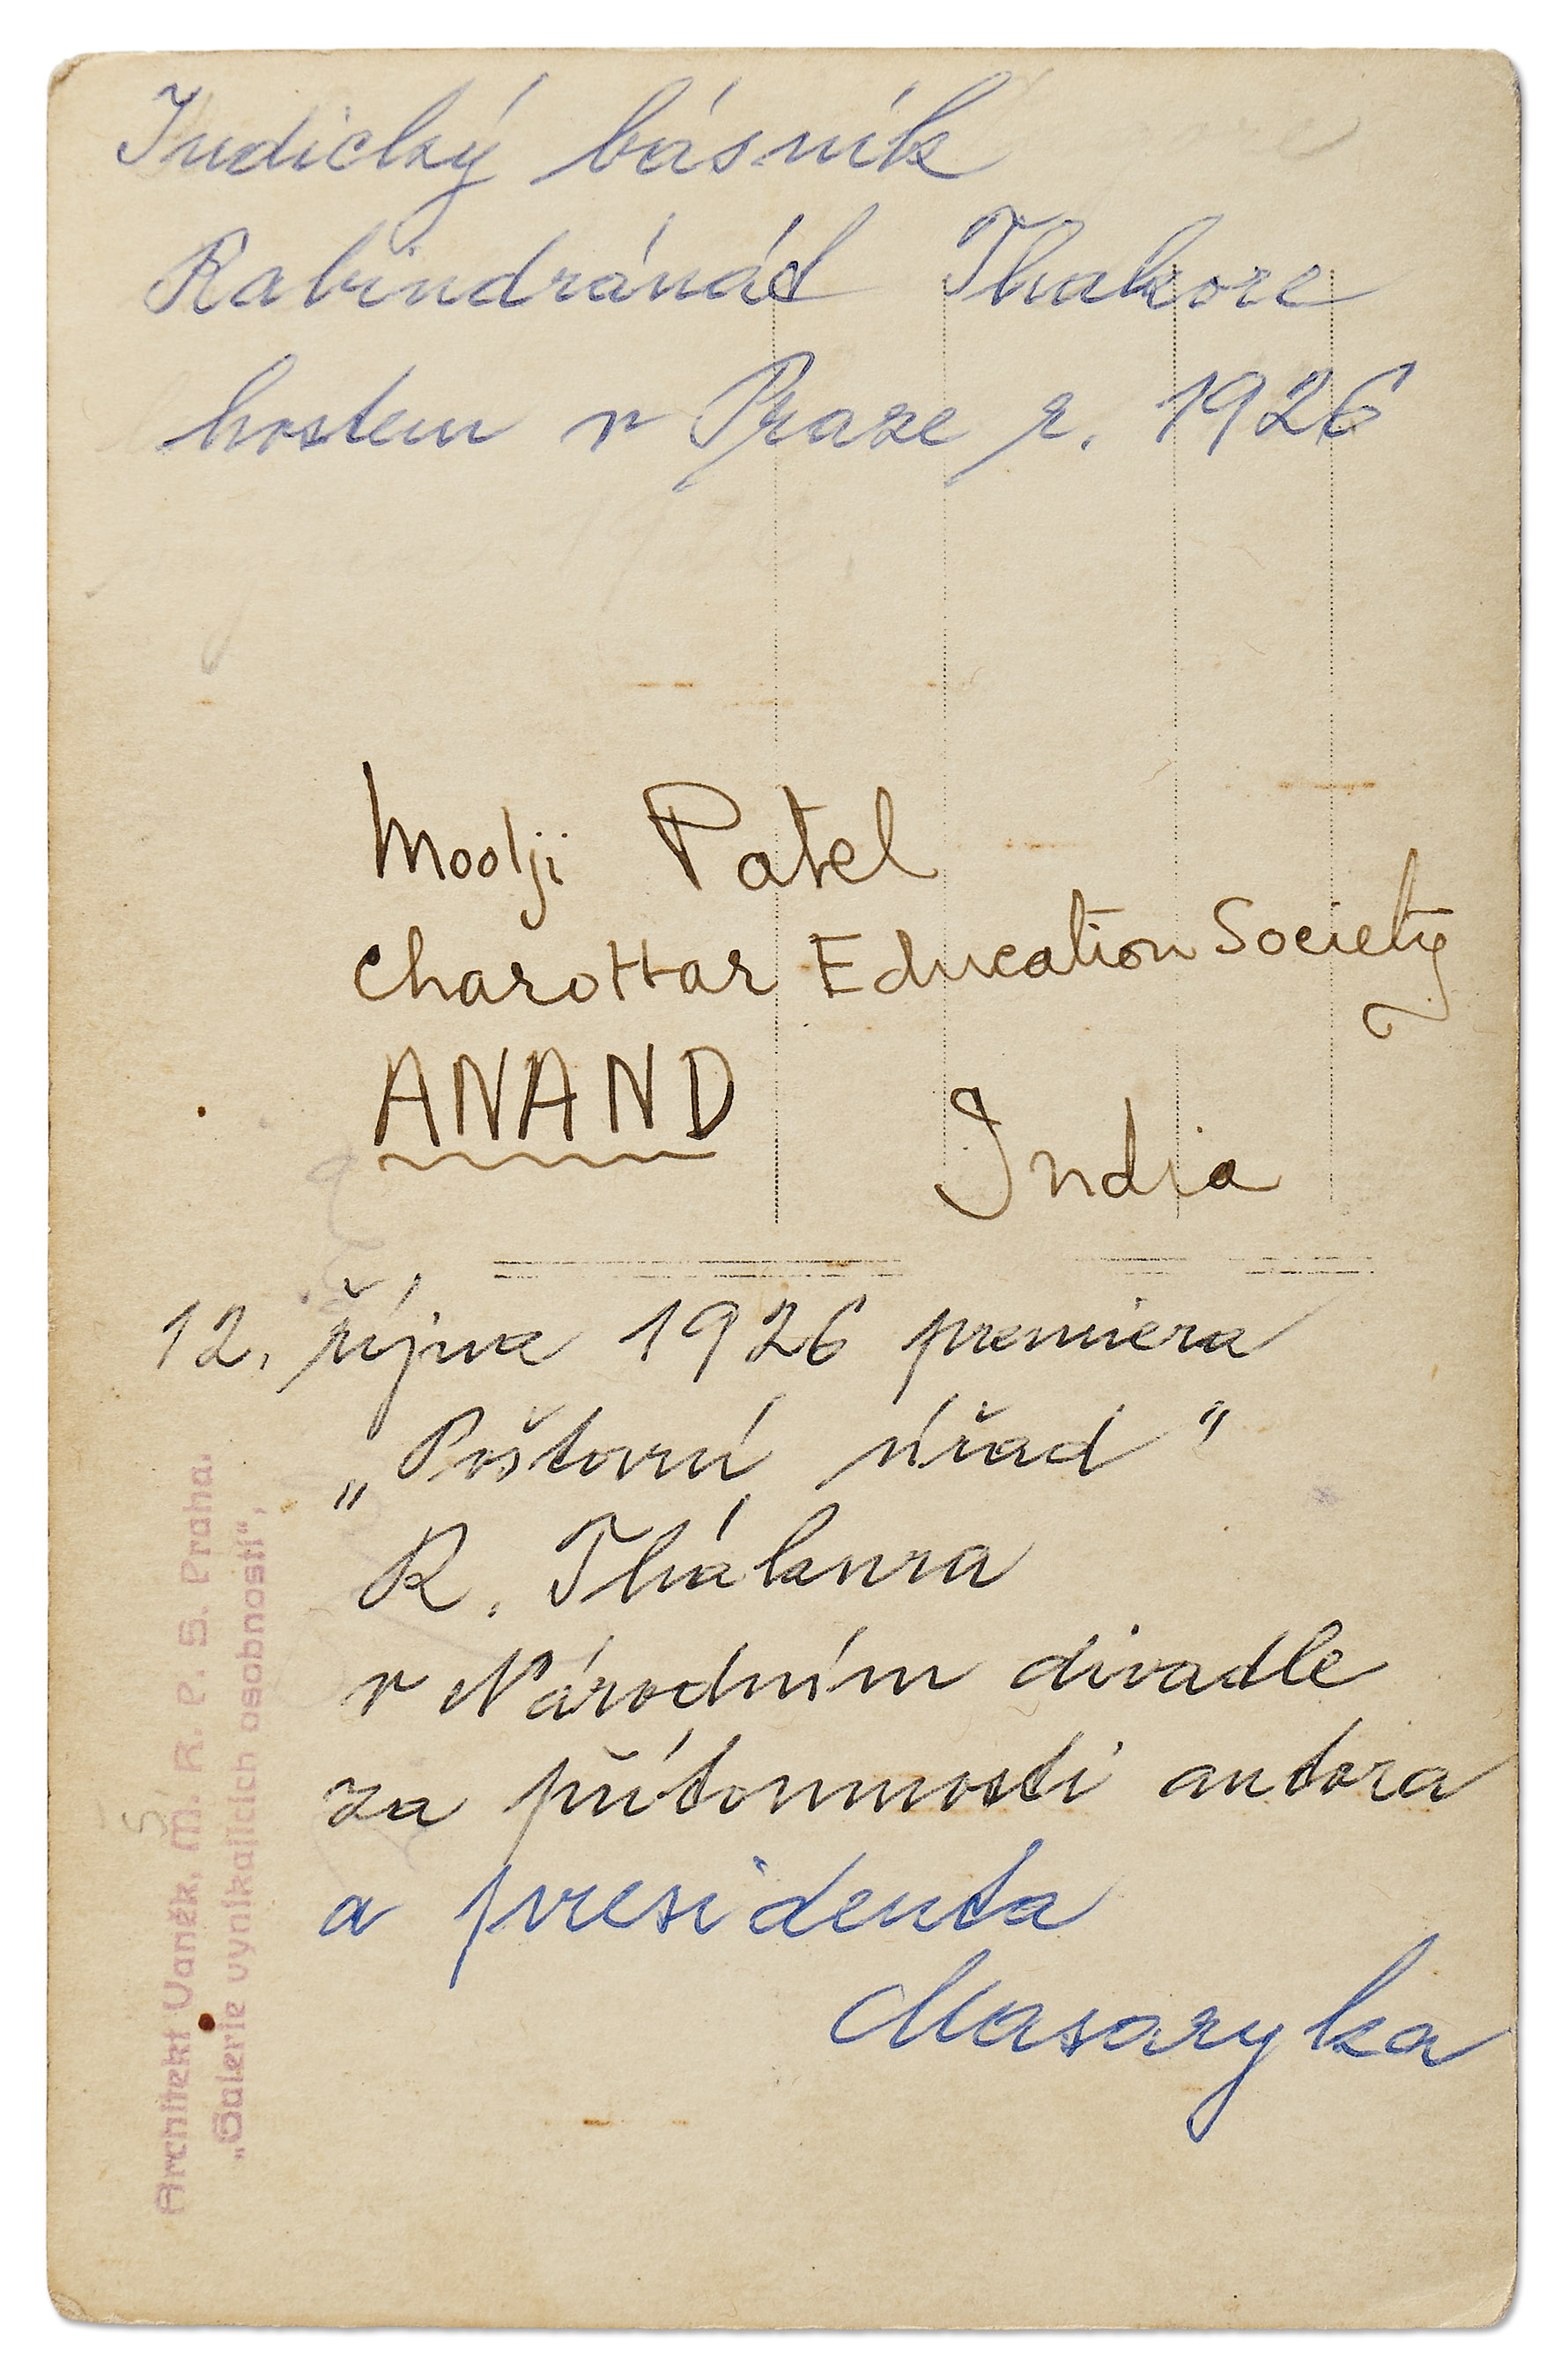 Indický básník
Rabindránád Thakore
hostem v Praze r. 1926
Moolji Patel
Charottar Education Society
ANAND
India
12. října 1926 premiera
„Poštovní úřad"
R. Thákura
v Národním divadle
za přítomnosti autora
a presidenta
Masaryka
Architekt Vaněk, M. R. P. S. Praha.
„Galerie vynikajících osobností",